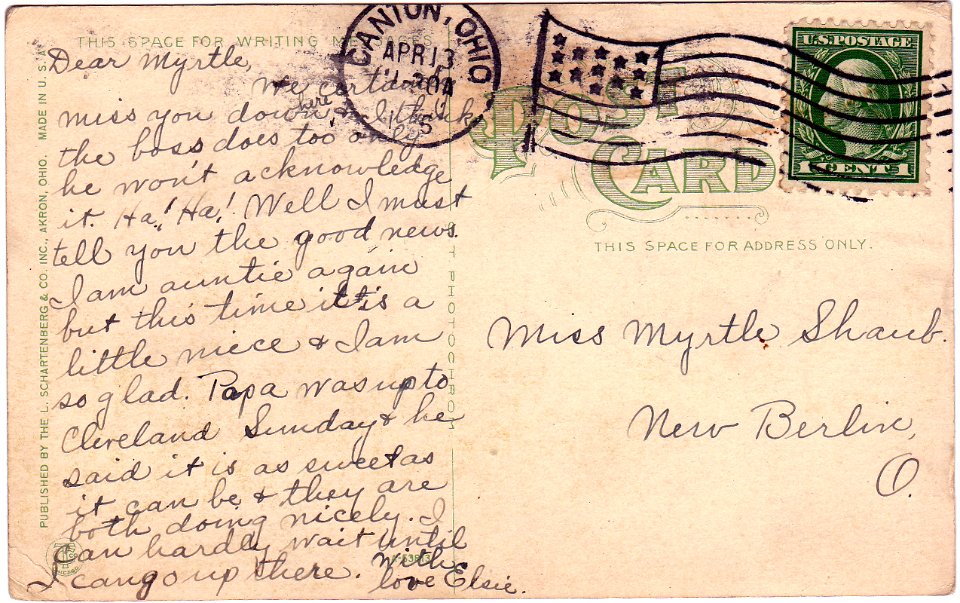 THIS SPACE FOR WRITING MESSAGES
Dear Myrtle,
We certainly
miss you down here, I think
the boss does too only
he won't acknowledge
it. Ha! Ha! Well I must
tell you the good news.
I am auntie again
but this time it is a
little niece & I am
so glad. Papa was up to
Cleveland Sunday & he
said it is as sweet as
it can be & they are
both doing nicely. I
can hardly wait until
I can go up there. With
love Elsie.
PUBLISHED BY THE L. SCHARTENBERG & CO. INC., AKRON, OHIO. MADE IN U. S. A.
CANTON, OHIO
APR 13
11-30A
POST
CARD
THIS SPACE FOR ADDRESS ONLY.
U.S. POSTAGE
1 CENT 1
Miss Myrtle Shaub.
New Berlin,
O.